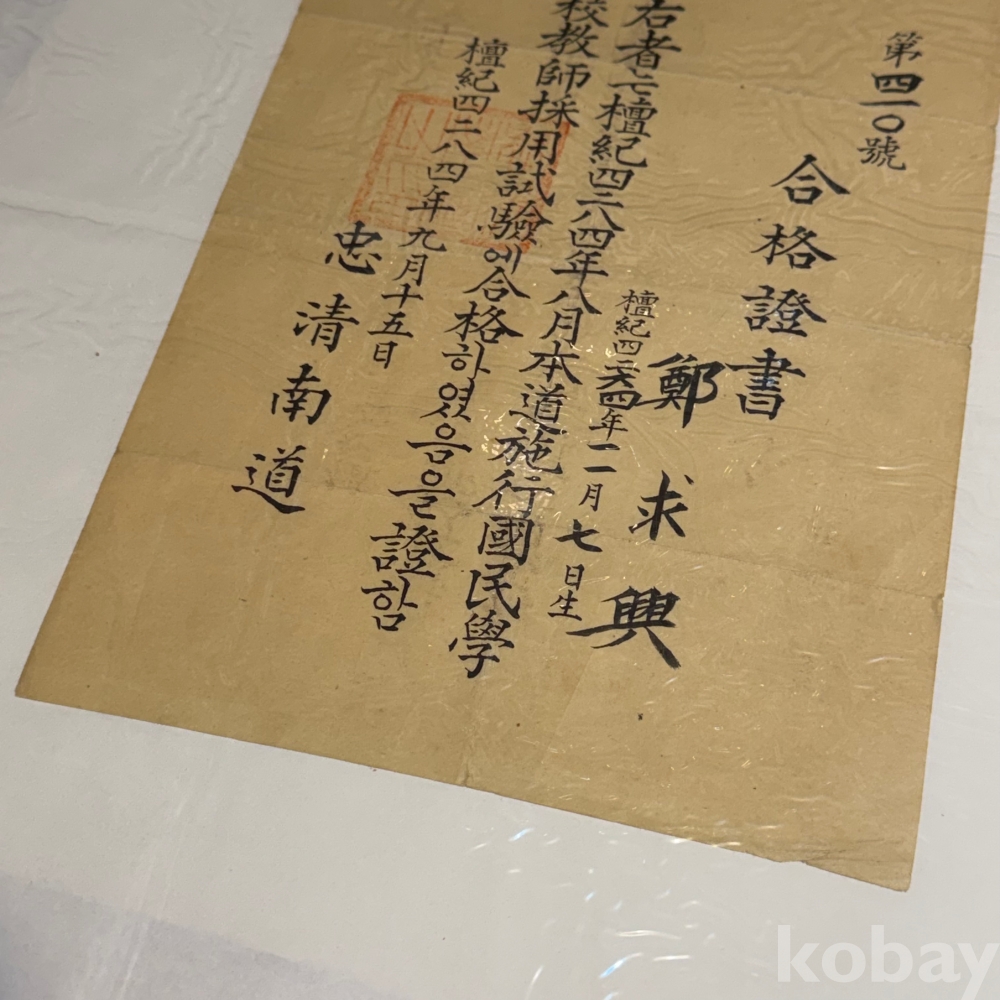 第四一〇號
合格證書
鄭求興
檀紀四二六四年一一月七日生
右者는檀紀四二八四年八月本道施行國民學
校教師採用試驗에合格하였음을證함
檀紀四二八四年九月十五日
忠清南道
kobay